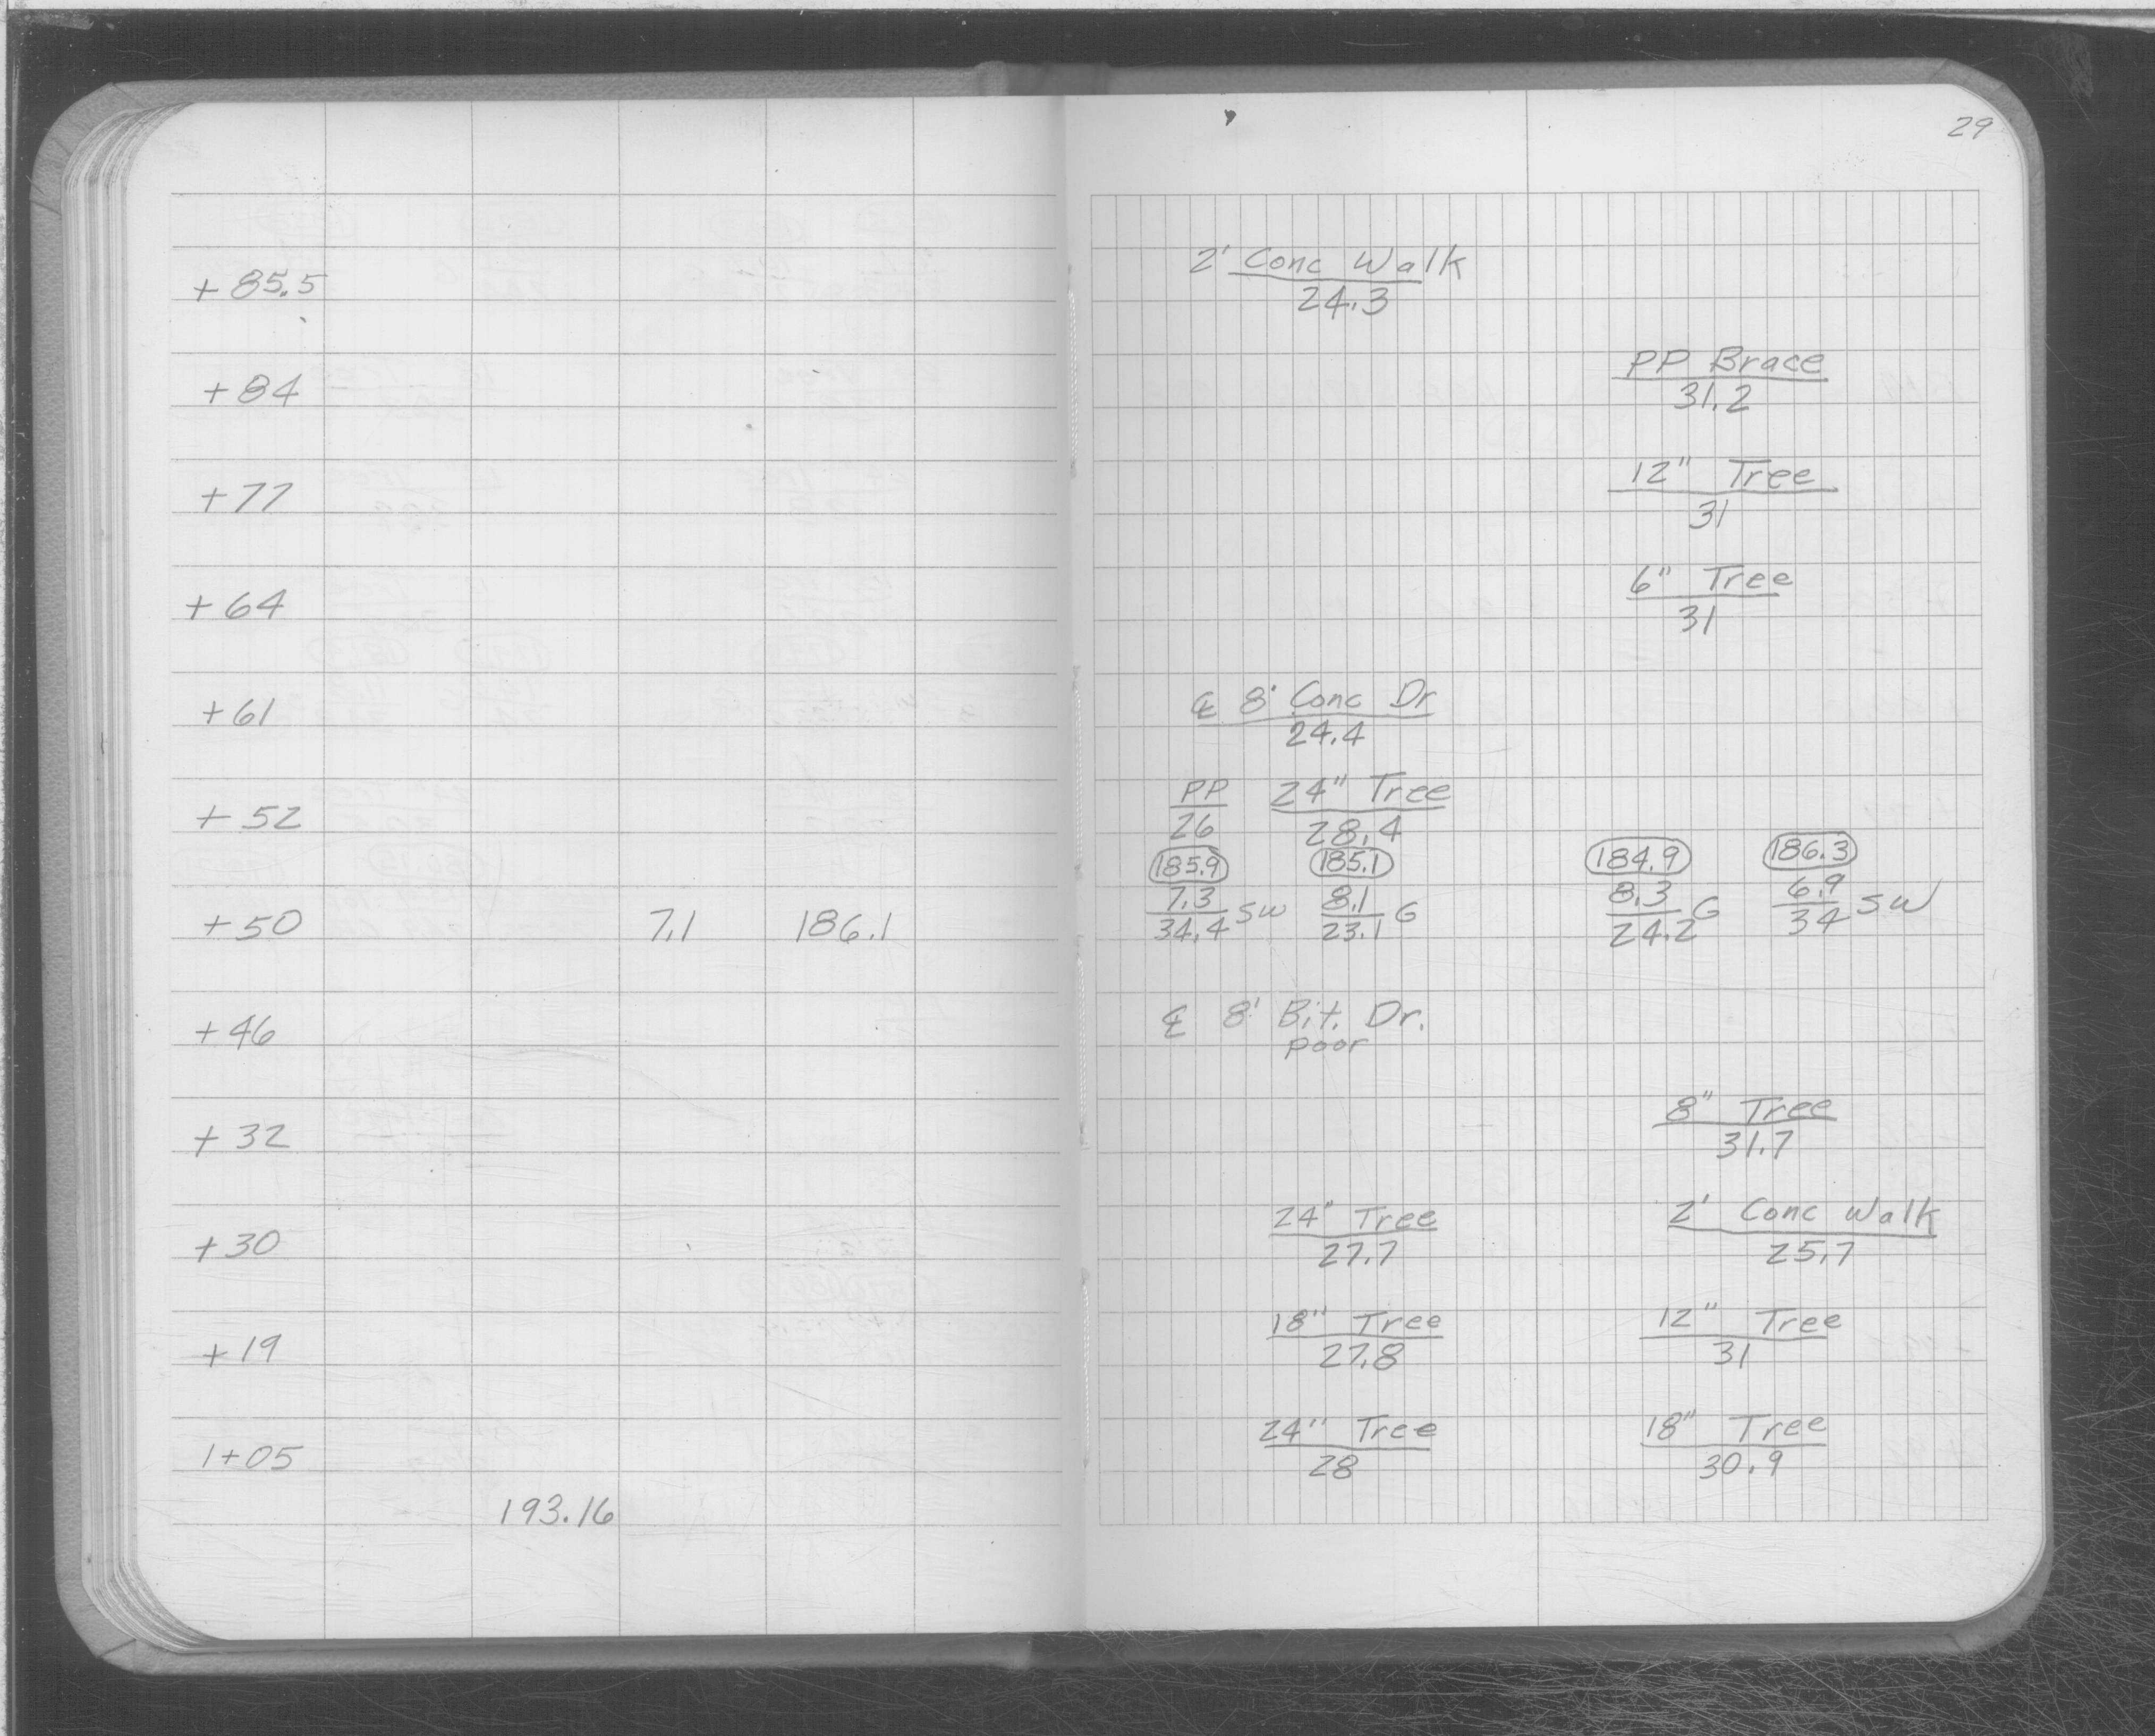 29
+ 85.5 2' Conc Walk
24.3
+ 84 PP Brace
31.2
+ 77 12" Tree
31
+ 64 6" Tree
31
+ 61 ℄ 8' Conc Dr
24.4
+ 52 PP 24" Tree
26 28.4
185.9 185.1 184.9 186.3
+ 50 7.1 186.1 7.3 SW 8.1 G 8.3 G 6.9 SW
34.4 23.1 24.2 34
+ 46 ℄ 8' Bit. Dr.
poor
+ 32 8" Tree
31.7
+ 30 24" Tree 2' Conc Walk
27.7 25.7
+ 19 18" Tree 12" Tree
27.8 31
1+05 24" Tree 18" Tree
28 30.9
193.16